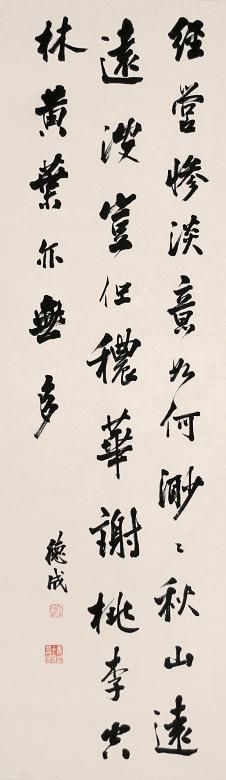 經營慘淡意如何渺〻秋山遠
遠波豈但穠華謝桃李空
林黃葉亦無多
德成